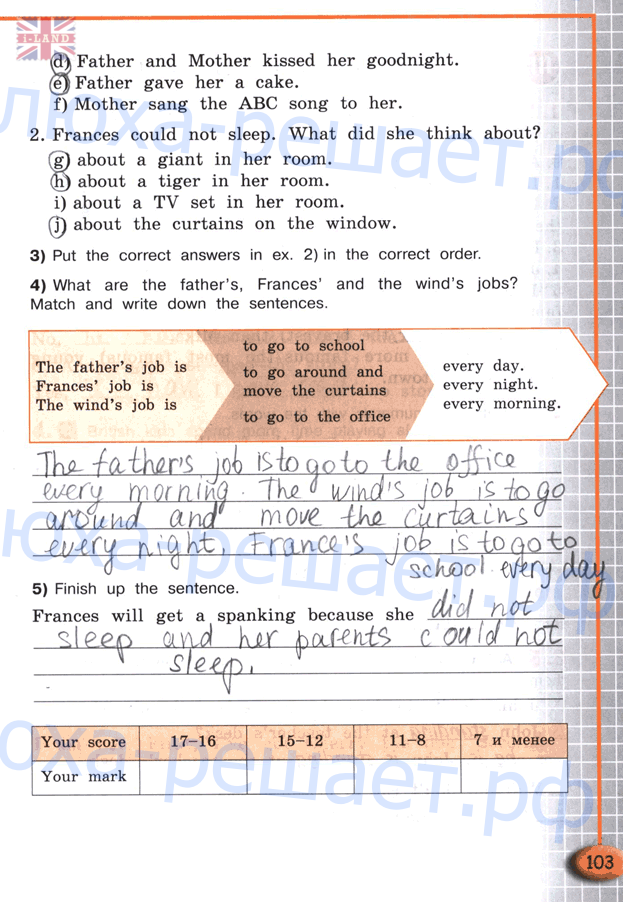 I-LAND
d) Father and Mother kissed her goodnight.
e) Father gave her a cake.
f) Mother sang the ABC song to her.
2. Frances could not sleep. What did she think about?
g) about a giant in her room.
h) about a tiger in her room.
i) about a TV set in her room.
j) about the curtains on the window.
3) Put the correct answers in ex. 2) in the correct order.
4) What are the father's, Frances' and the wind's jobs?
Match and write down the sentences.
The father's job is
Frances' job is
The wind's job is
to go to school
to go around and
move the curtains
to go to the office
every day.
every night.
every morning.
The father's job is to go to the office
every morning. The wind's job is to go
around and move the curtains
every night. France's job is to go to
school every day
5) Finish up the sentence.
Frances will get a spanking because she did not
sleep and her parents could not
sleep.
Your score 17–16 15–12 11–8 7 и менее
Your mark
103
люха-решает.рф
юха-решает.рф
юха-решает.рф